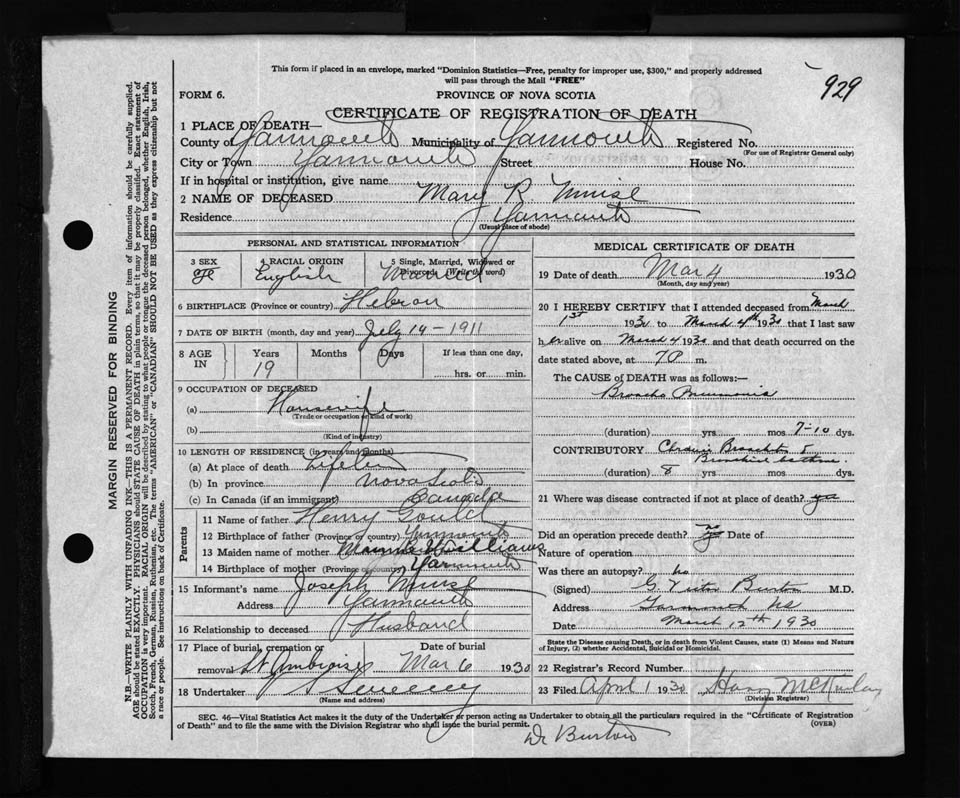 929
This form if placed in an envelope, marked "Dominion Statistics—Free, penalty for improper use, $300," and properly addressed
will pass through the Mail "FREE"
FORM 6.
PROVINCE OF NOVA SCOTIA
CERTIFICATE OF REGISTRATION OF DEATH
1 PLACE OF DEATH—
County of Yarmouth Municipality of Yarmouth Registered No.
(For use of Registrar General only)
City or Town Yarmouth Street House No.
If in hospital or institution, give name
2 NAME OF DECEASED Mary R. Muise
Residence Yarmouth
(Usual place of abode)
PERSONAL AND STATISTICAL INFORMATION
3 SEX 4 RACIAL ORIGIN 5 Single, Married, Widowed or Divorced (Write the word)
F English Married
6 BIRTHPLACE (Province or country) Hebron
7 DATE OF BIRTH (month, day and year) July 14 - 1911
8 AGE IN Years Months Days If less than one day,
19 hrs. or min.
9 OCCUPATION OF DECEASED
(a) Housewife
(Trade or occupation or kind of work)
(b)
(Kind of industry)
10 LENGTH OF RESIDENCE (in years and months)
(a) At place of death Lifetime
(b) In province Nova Scotia
(c) In Canada (if an immigrant) Canada
Parents
11 Name of father Henry Gould
12 Birthplace of father (Province or country) Yarmouth
13 Maiden name of mother Williams
14 Birthplace of mother (Province or country) Yarmouth
15 Informant's name Joseph Muise
Address Yarmouth
16 Relationship to deceased Husband
17 Place of burial, cremation or removal St. Ambroise Date of burial Mar 6 1930
18 Undertaker Sweeney
(Name and address)
MEDICAL CERTIFICATE OF DEATH
19 Date of death Mar 4 1930
(Month, day and year)
20 I HEREBY CERTIFY that I attended deceased from March
1st 1930 to March 4th 1930 that I last saw
h er alive on March 4 1930 and that death occurred on the
date stated above, at 7 P m.
The CAUSE of DEATH was as follows:—
Broncho Pneumonia
(duration) yrs mos 7-10 dys.
CONTRIBUTORY Chronic Bronchitis &
Bronchial asthma
(duration) 8 yrs mos dys.
21 Where was disease contracted if not at place of death? yes
Did an operation precede death? no Date of
Nature of operation
Was there an autopsy? no
(Signed) G Victor Burton M.D.
Address Yarmouth NS
Date March 12th 1930
State the Disease causing Death, or in death from Violent Causes, state (1) Means and Nature
of Injury, (2) whether Accidental, Suicidal or Homicidal.
22 Registrar's Record Number
23 Filed April 1 1930 Harry McKinlay
(Division Registrar)
SEC. 46—Vital Statistics Act makes it the duty of the Undertaker or person acting as Undertaker to obtain all the particulars required in the "Certificate of Registration
of Death" and to file the same with the Division Registrar who shall issue the burial permit. (OVER)
Dr Burton
MARGIN RESERVED FOR BINDING
N.B.—WRITE PLAINLY WITH UNFADING INK—THIS IS A PERMANENT RECORD. Every item of information should be carefully supplied.
AGE should be stated EXACTLY. PHYSICIANS should STATE CAUSE OF DEATH in plain terms, so that it may be properly classified. Exact statement of
OCCUPATION is very important. RACIAL ORIGIN will be described by stating to what people or tongue the deceased person belonged, whether English, Irish,
Scotch, French, German, Russian, Ruthenian, etc. The terms "AMERICAN" or "CANADIAN" SHOULD NOT BE USED as they express citizenship but not
a race or people. See instructions on back of Certificate.